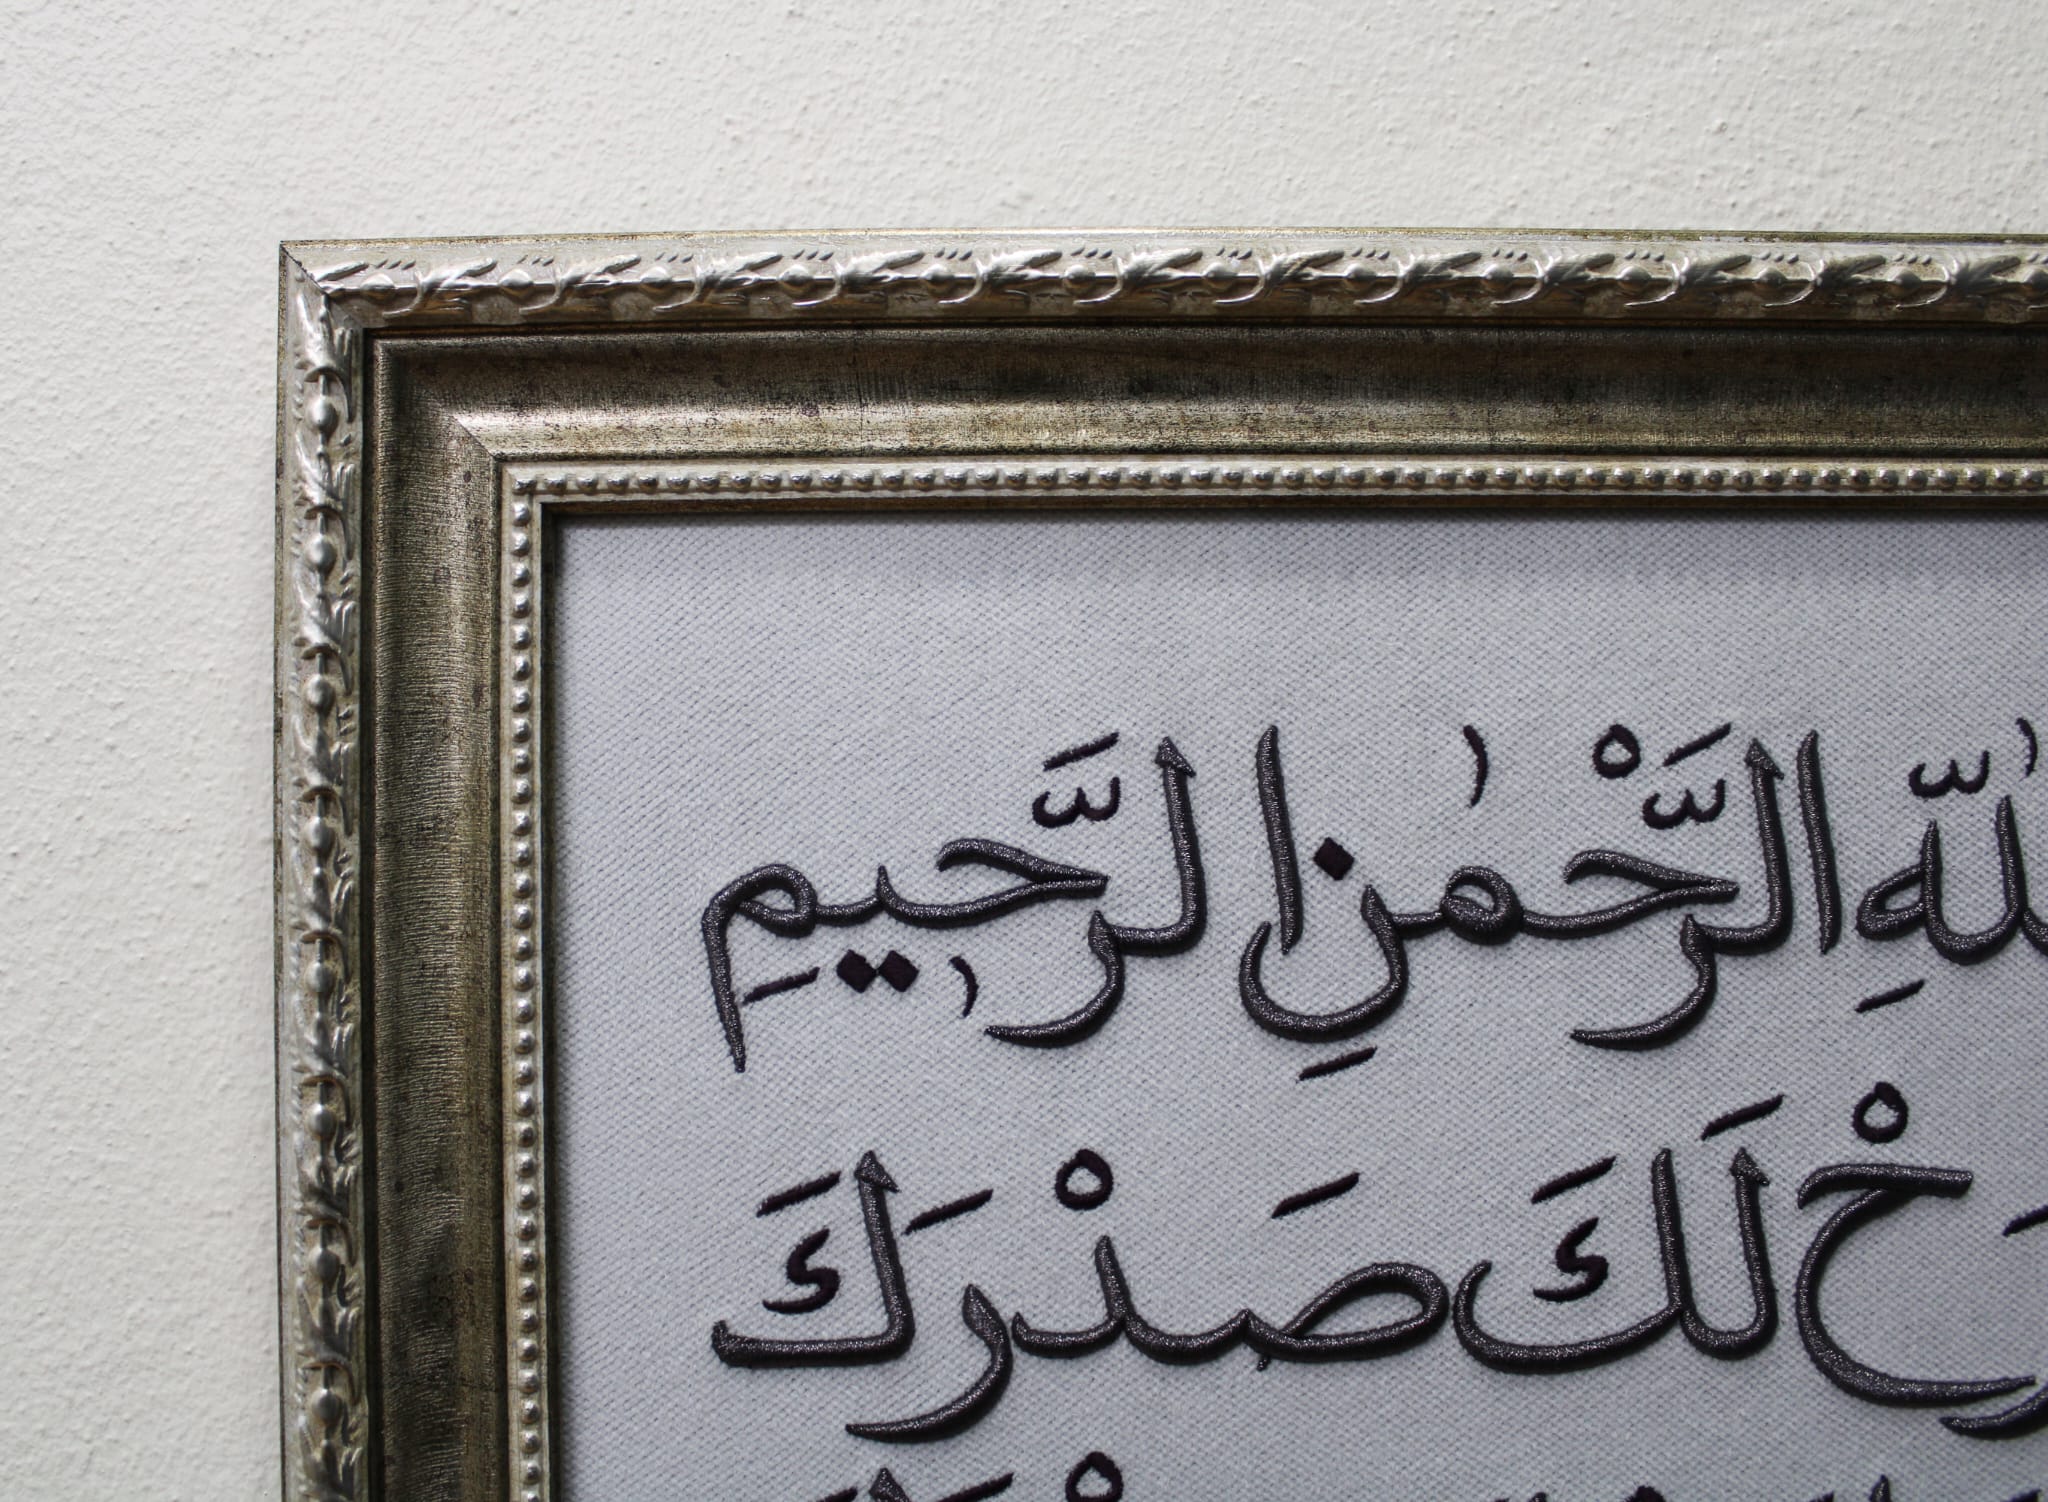 للّٰهِ الرَّحْمٰنِ الرَّحيمِ
رَحْ لَكَ صَدْرَكَ